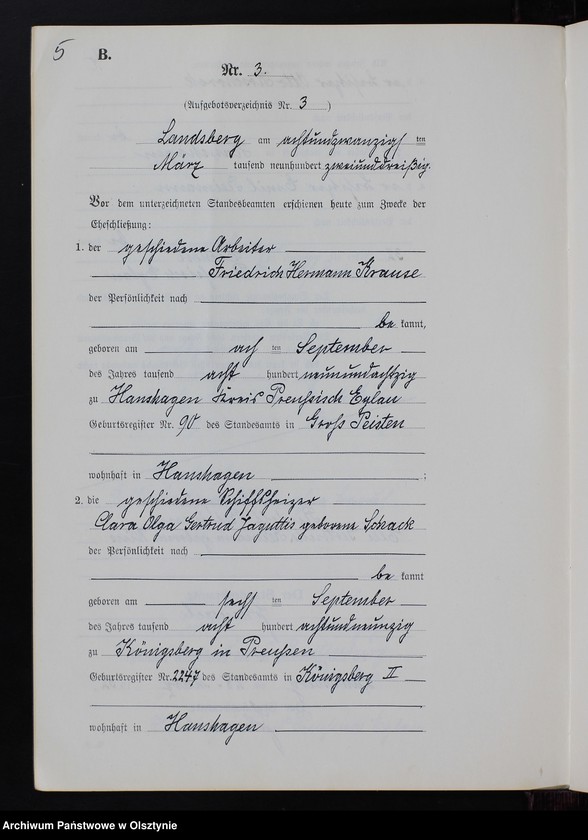 5
B.
Nr. 3.
(Aufgebotsverzeichnis Nr. 3)
Landsberg am achtundzwanzigsten
März tausend neunhundert zweiunddreißig.
Vor dem unterzeichneten Standesbeamten erschienen heute zum Zwecke der
Eheschließung:
1. der geschiedene Arbeiter
Friedrich Hermann Krause
der Persönlichkeit nach
be kannt,
geboren am ach ten September
des Jahres tausend acht hundert neunundachtzig
zu Hanshagen Kreis Preußisch Eylau
Geburtsregister Nr. 90 des Standesamts in Groß Peisten
wohnhaft in Hanshagen ;
2. die geschiedene Schiffsheizer
Clara Olga Gertrud Jaguttis geborene Schack
der Persönlichkeit nach
be kannt
geboren am sechs ten September
des Jahres tausend acht hundert achtundneunzig
zu Königsberg in Preußen
Geburtsregister Nr. 2247 des Standesamts in Königsberg II
wohnhaft in Hanshagen
Archiwum Państwowe w Olsztynie